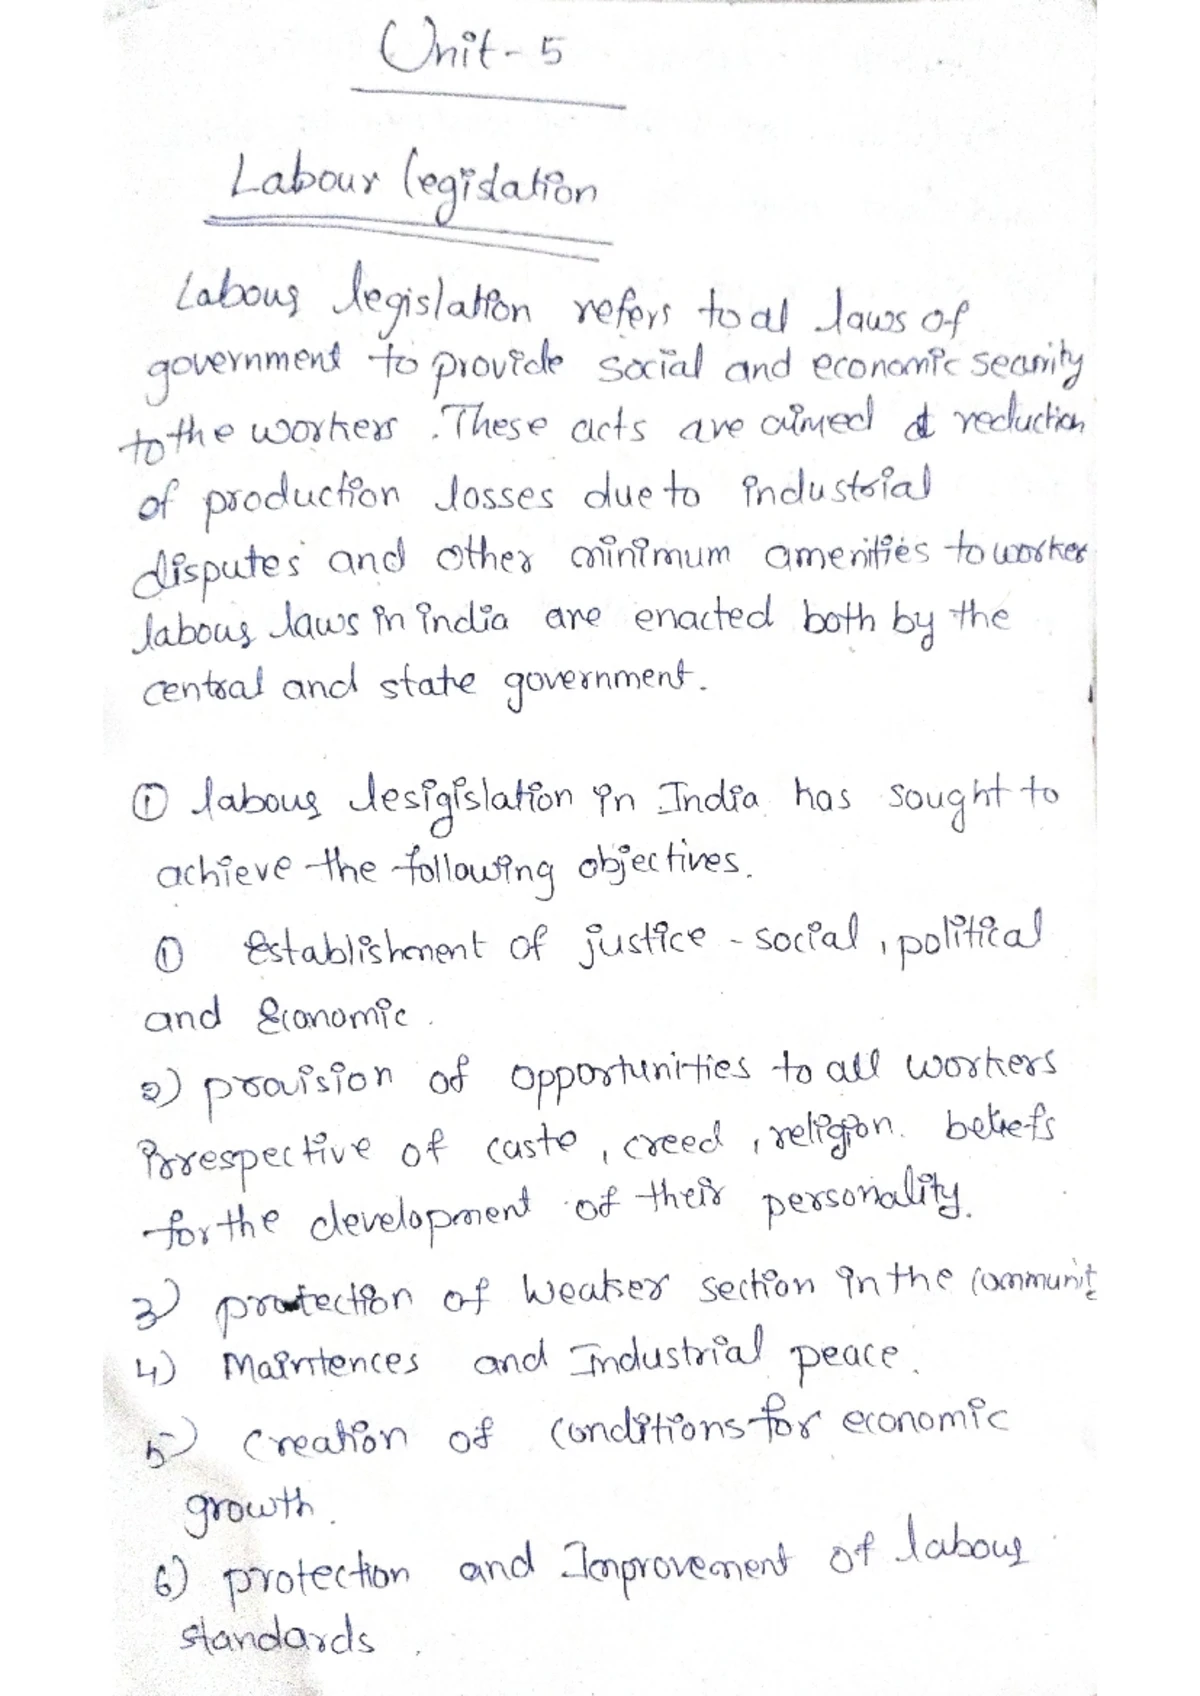 Unit - 5
Labour legislation
Labour legislation refers to al laws of
government to provide social and economic security
to the workers . These acts are aimed at reduction
of production losses due to industrial
disputes and other minimum amenities to worker
labour laws in india are enacted both by the
central and state government.
① labour lesigislation in India has sought to
achieve the following objectives.
① Establishment of justice - social , political
and Economic .
2) provision of opportunities to all workers
Irrespective of caste , creed , religion. beliefs
for the development of their personality.
3) protection of weaker section in the communit
4) Maintences and Industrial peace .
5) Creation of conditions for economic
growth .
6) protection and Improvement of labour
standards .